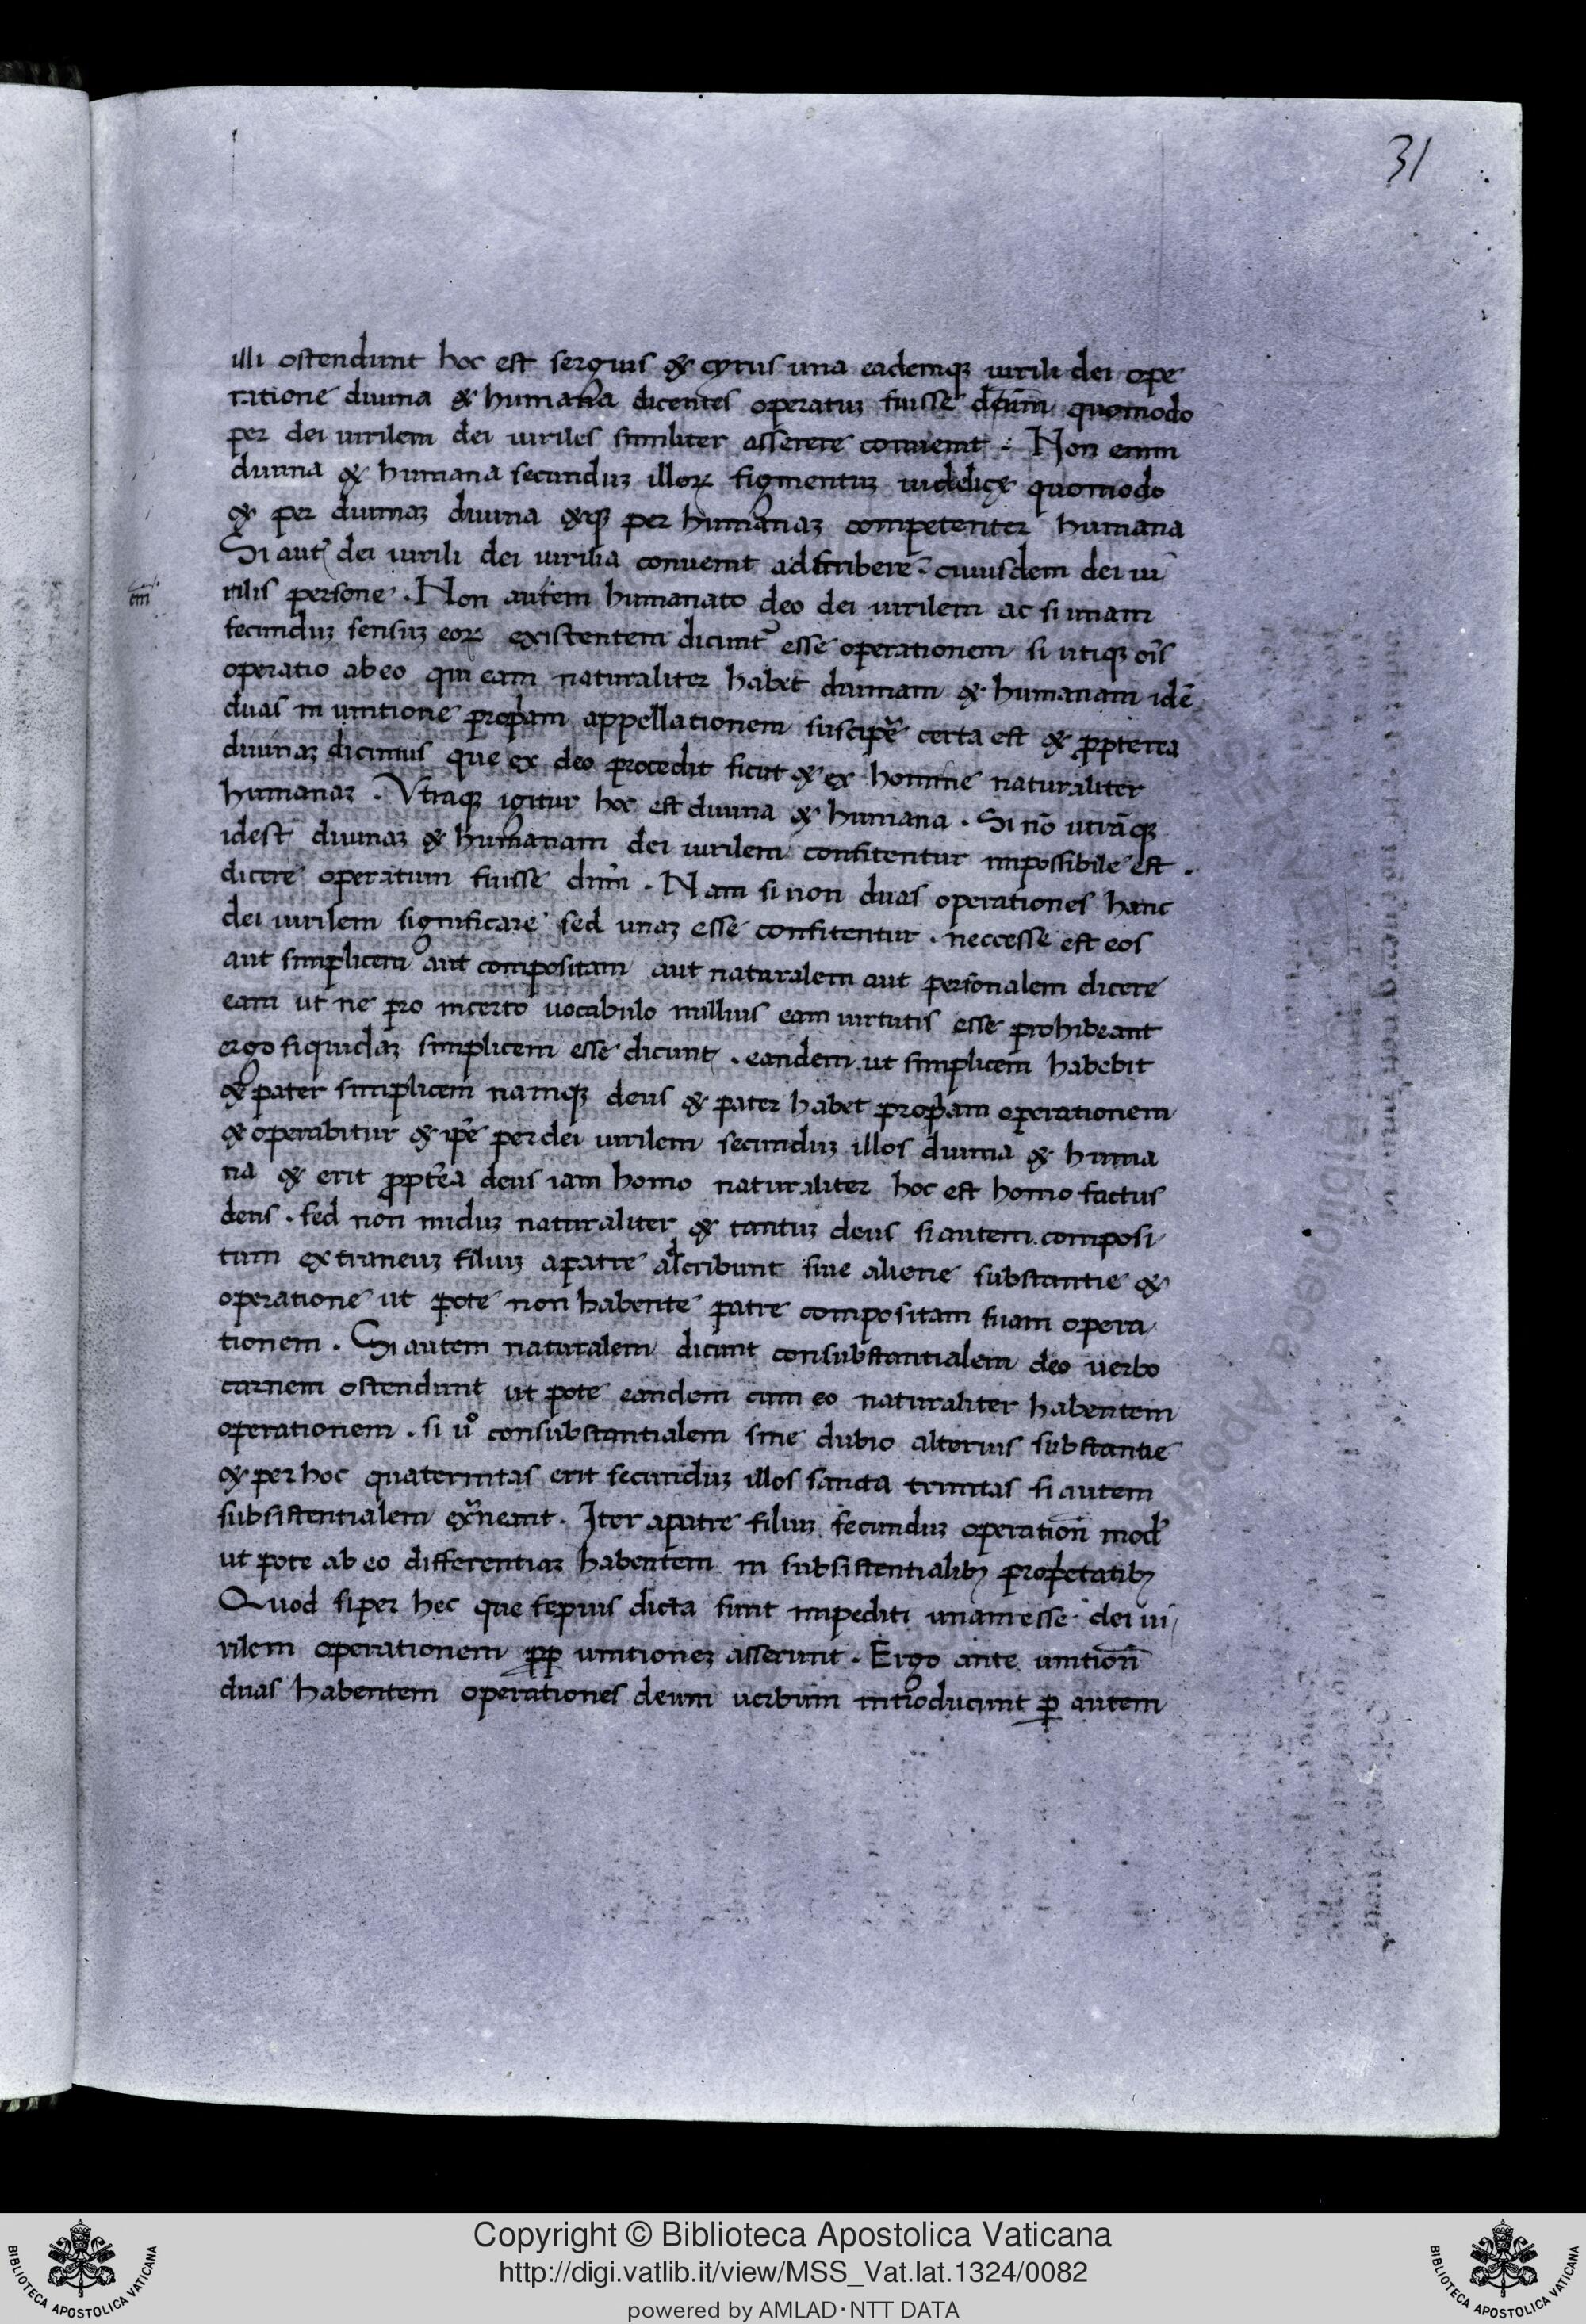 31
illi ostendunt hoc est sergius & cyrus una eademq; uirili dei ope
ratione diuina & humana dicentes operatuȝ fuisse quomodo
per dei uirilem dei uiriles similiter asserere conuenit. Non enim
diuina & humana secunduȝ illoꝝ figmentuȝ quomodo
& per diuinaȝ diuina per humanaȝ competenter humana
Si aut dei uirili dei uirilia conuenit adscribere. eiuusdem dei ui
rilis persone. Non autem humanato deo dei uirilem ac si unam
secunduȝ sensuȝ eoꝝ existentem dicunt esse operationem si utiq; oīs
operatio ab eo qui eam naturaliter habet diuinam & humanam idē
duas in unitione propam appellationem suscipe certa est & ꝓpterea
diuinaȝ dicimus que ex deo procedit sicut & ex homine naturaliter
humanaȝ. Vtraq; igitur hoc est diuina & humana. Si nō utrāq;
idest diuinaȝ & humanam dei uirilem confitentur impossibile est.
dicere operatum fuisse dnm̄. Nam si non duas operationes hanc
dei uirilem significare sed unaȝ esse confitentur. neccesse est eos
aut simplicem aut compositam aut naturalem aut personalem dicere
eam ut ne pro incerto uocabulo nullius eam uirtutis esse prohibeant
ergo siquidaȝ simplicem esse dicunt. eandem ut simplicem habebit
& pater simplicem namq; deus & pater habet propam operationem
& operabitur & ipē per dei uirilem secunduȝ illos diuina & huma
na & erit ꝓptea deus iam homo naturaliter hoc est homo factus
deus. sed non nuduȝ naturaliter & tantuȝ deus si autem composi
tum extraneuȝ filiuȝ apatre adscribunt siue aliene substantie &
operatione ut pote non habente patre compositam suam opera
tionem. Si autem naturalem dicunt consubstantialem deo uerbo
carnem ostendunt ut pote eandem cum eo naturaliter habentem
operationem. si uº consubstantialem sine dubio alterius substantie
& per hoc quaternitas erit secunduȝ illos sancta trinitas si autem
subsistentialem Iter apatre filiuȝ secunduȝ operation̄ mod
ut pote ab eo differentiaȝ habentem in subsistentialibȝ propetatibȝ
Quod si per hec que sepius dicta sunt impediti unam esse dei ui
rilem operationem ꝓp unitioneȝ asserunt. Ergo ante unition̄
duas habentem operationes deum uerbum introducunt ꝑ autem
Copyright © Biblioteca Apostolica Vaticana
http://digi.vatlib.it/view/MSS_Vat.lat.1324/0082
powered by AMLAD·NTT DATA
BIBLIOTECA APOSTOLICA VATICANA
BIBLIOTECA APOSTOLICA VATICANA